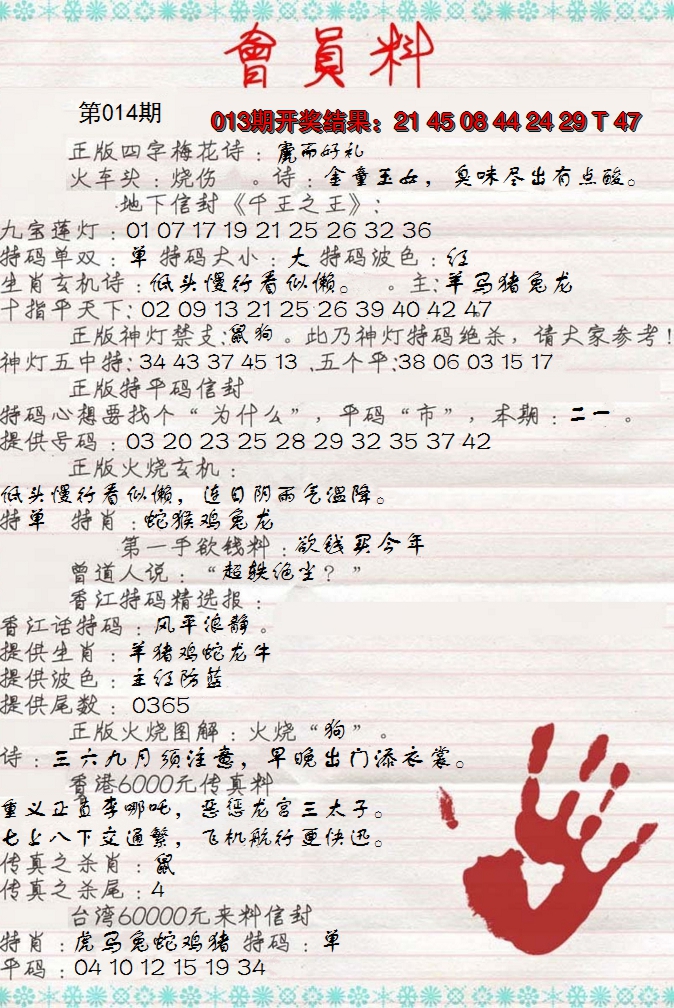 會員料
第014期
013期开奖结果：21 45 08 44 24 29 T 47
正版四字梅花诗：虎而好礼
火车头：烧伤 。诗：金童玉女，臭味尽出有点酸。
地下信封《千王之王》：
九宝莲灯：01 07 17 19 21 25 26 32 36
特码单双：单 特码大小：大 特码波色：红
生肖玄机诗：低头慢行看似懒。 。主：羊马猪兔龙
十指平天下：02 09 13 21 25 26 39 40 42 47
正版神灯禁支：鼠狗 。此乃神灯特码绝杀，请大家参考！
神灯五中特：34 43 37 45 13 .五个平：38 06 03 15 17
正版特平码信封
特码心想要找个“为什么”，平码“市”，本期：二一 。
提供号码：03 20 23 25 28 29 32 35 37 42
正版火烧玄机：
低头慢行看似懒，连日阴雨气温降。
特单 特肖：蛇猴鸡兔龙
第一手欲钱料：欲钱买今年
曾道人说：“超轶绝尘？”
香江特码精选报：
香江话特码：风平浪静。
提供生肖：羊猪鸡蛇龙牛
提供波色：主红防蓝
提供尾数：0365
正版火烧图解：火烧“狗”。
诗：三六九月须注意，早晚出门添衣裳。
香港6000元传真料
重义正直李哪吒，恶惩龙宫三太子。
七上八下交通繁，飞机航行更快迅。
传真之杀肖：鼠
传真之杀尾：4
台湾60000元来料信封
特肖：虎马兔蛇鸡猪 特码：单
平码：04 10 12 15 19 34